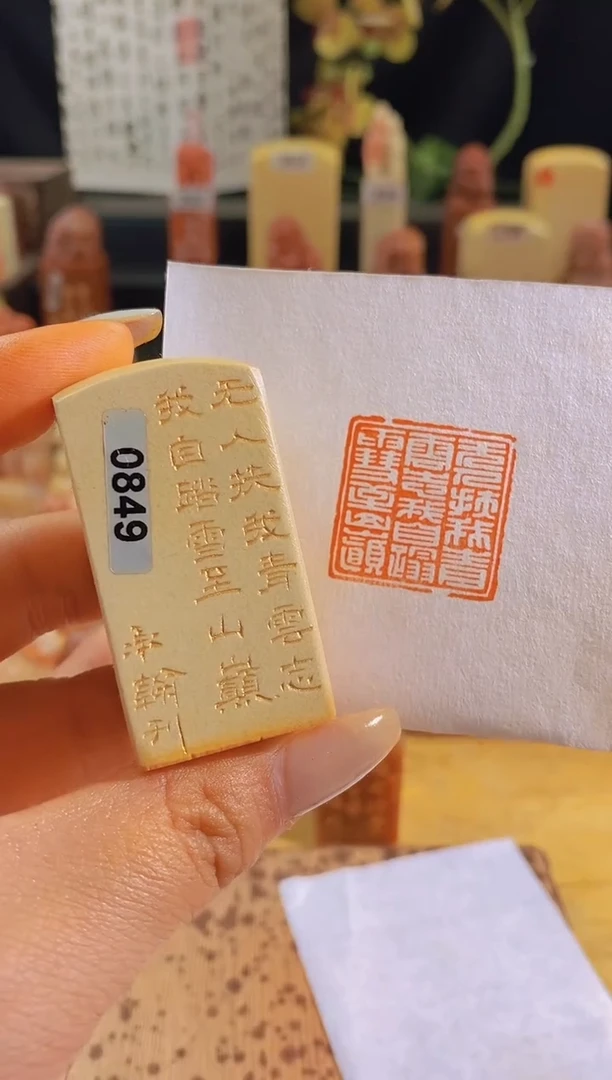 无人扶我青雲志
我自踏雪至山巔
承翰刊
0849
无人扶我青
雲志我自踏
雪至山巔